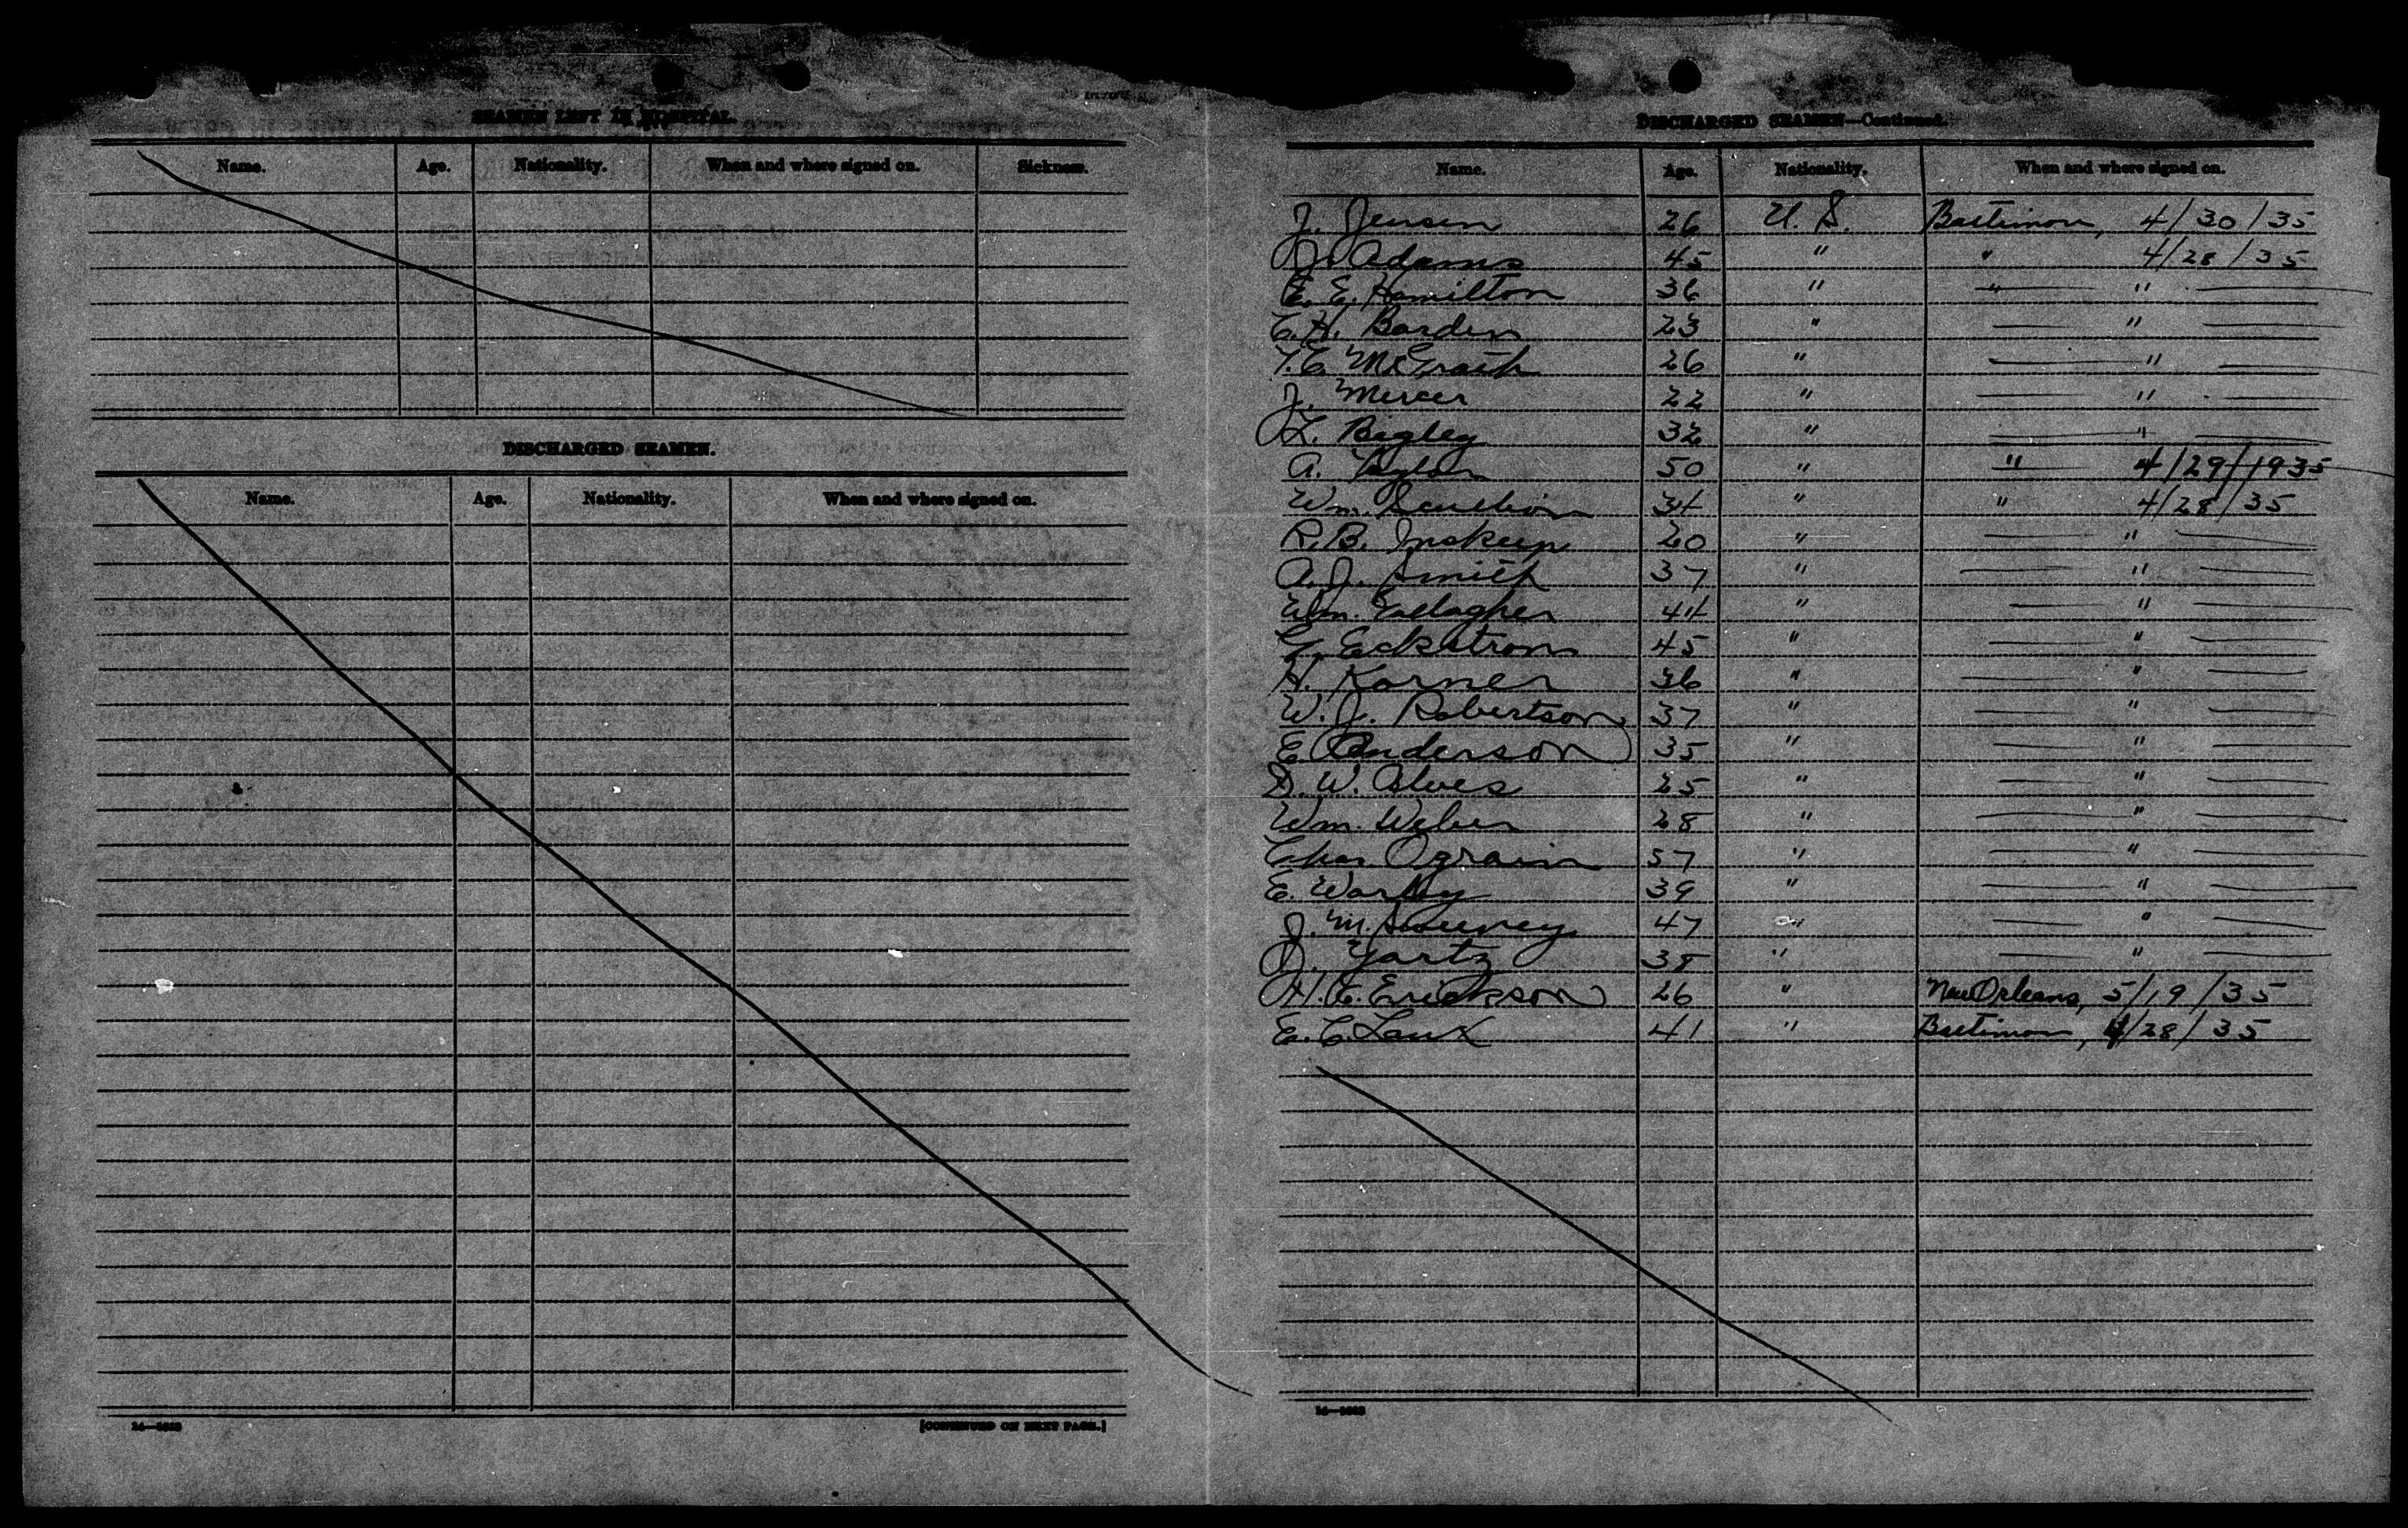 SEAMEN LEFT IN HOSPITAL.
Name. Age. Nationality. When and where signed on. Sickness.
DISCHARGED SEAMEN.
Name. Age. Nationality. When and where signed on.
14—1683
[CONTINUED ON NEXT PAGE.]
DISCHARGED SEAMEN—Continued.
Name. Age. Nationality. When and where signed on.
J. Jensen 26 U. S. Baltimore, 4/30/35
J. Adams 45 " " 4/28/35
E. E. Hamilton 36 " " "
E. H. Barden 23 " "
T. E. McGrath 26 " "
J. Mercer 22 " "
L. Bigley 32 " "
A. Taylor 50 " " 4/29/1935
Wm. 34 " " 4/28/35
R. B. Inskeep 20 " "
A. J. Smith 37 " "
Wm. Gallagher 44 " "
G. Eckstrom 45 " "
H. Korner 36 " "
W. J. Robertson 37 " "
E. Anderson 35 " "
D. W. Alves 25 " "
Wm. Weber 28 " "
Chas. Ograin 57 " "
E. Worley 39 " "
J. M. Sweeney 47 " "
J. Yartz 38 " "
H. E. Erickson 26 " New Orleans, 5/19/35
E. C. Laux 41 " Baltimore, 4/28/35
14—1683